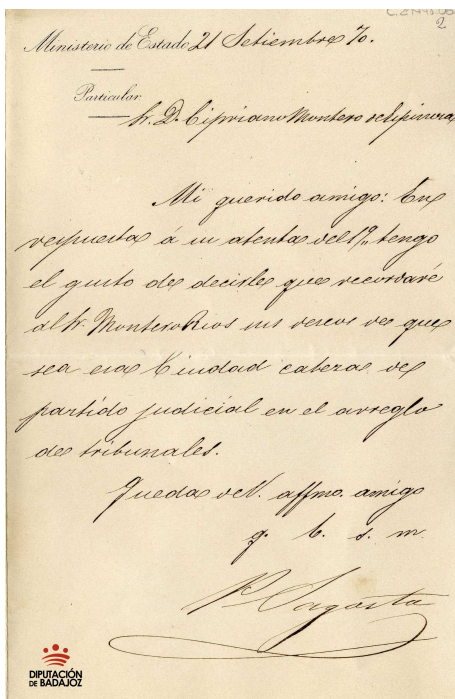 2
Ministerio de Estado 21 Setiembre 70.
Particular
Sr. D. Cipriano Montero de Espinosa
Mi querido amigo: En
respuesta á su atenta del 19, tengo
el gusto de decirle que recordaré
al Sr. Montero Rios sus deseos de que
sea esa Ciudad cabeza de
partido judicial en el arreglo
de tribunales.
Queda de V. affmo. amigo
q. b. s. m.
P. Sagasta
DIPUTACIÓN
DE BADAJOZ